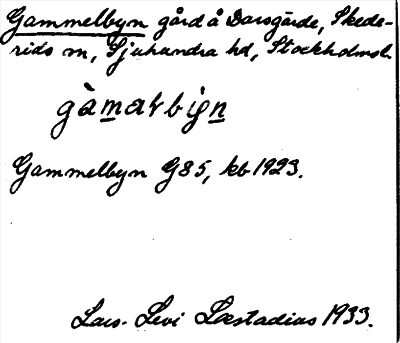 Gammelbyn gård å Darsgärde, Skede-
rids sn, Sjuhundra hd, Stockholmsl.
gàmaɽbiy̨n
Gammelbyn G85, kb 1923.
Lars-Levi Læstadius 1933.